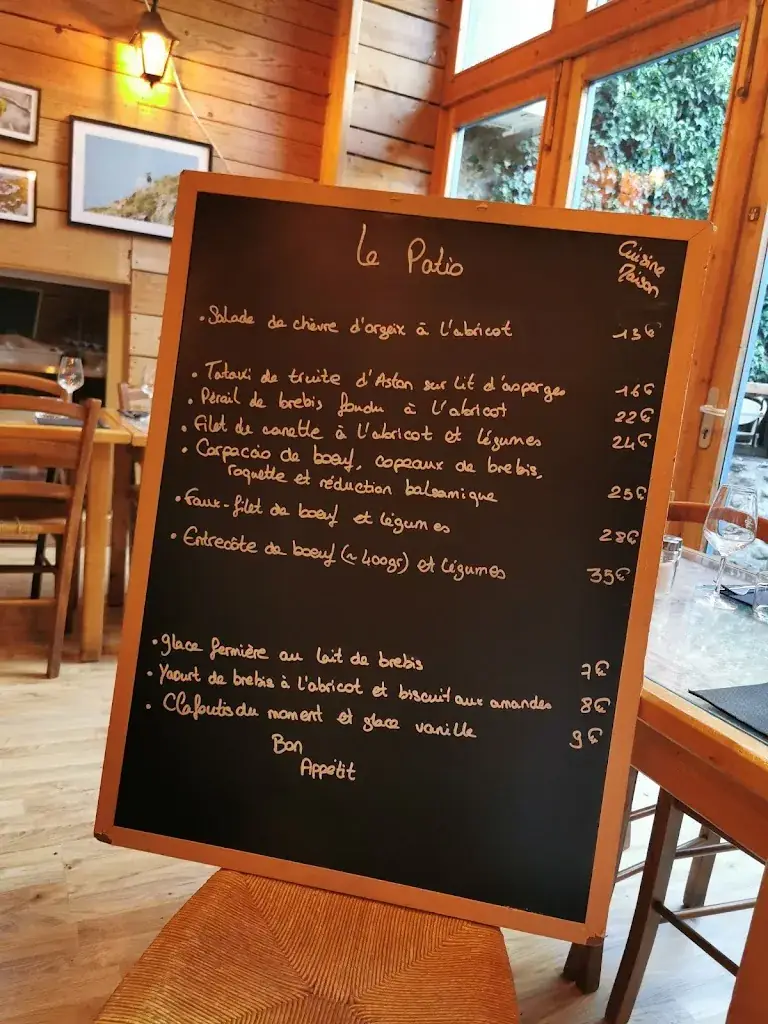 Le Patio
Cuisine
Maison
• Salade de chèvre d'orgeix à l'abricot 13€
• Tataki de truite d'Aston sur lit d'asperges 16€
• Pérail de brebis fondu à l'abricot 22€
• Filet de canette à l'abricot et légumes 24€
• Carpaccio de boeuf, copeaux de brebis,
roquette et réduction balsamique 25€
• Faux-filet de boeuf et légumes 28€
• Entrecôte de boeuf (~400gr) et légumes 35€
• glace fermière au lait de brebis 7€
• Yaourt de brebis à l'abricot et biscuit aux amandes 8€
• Clafoutis du moment et glace vanille 9€
Bon
Appétit